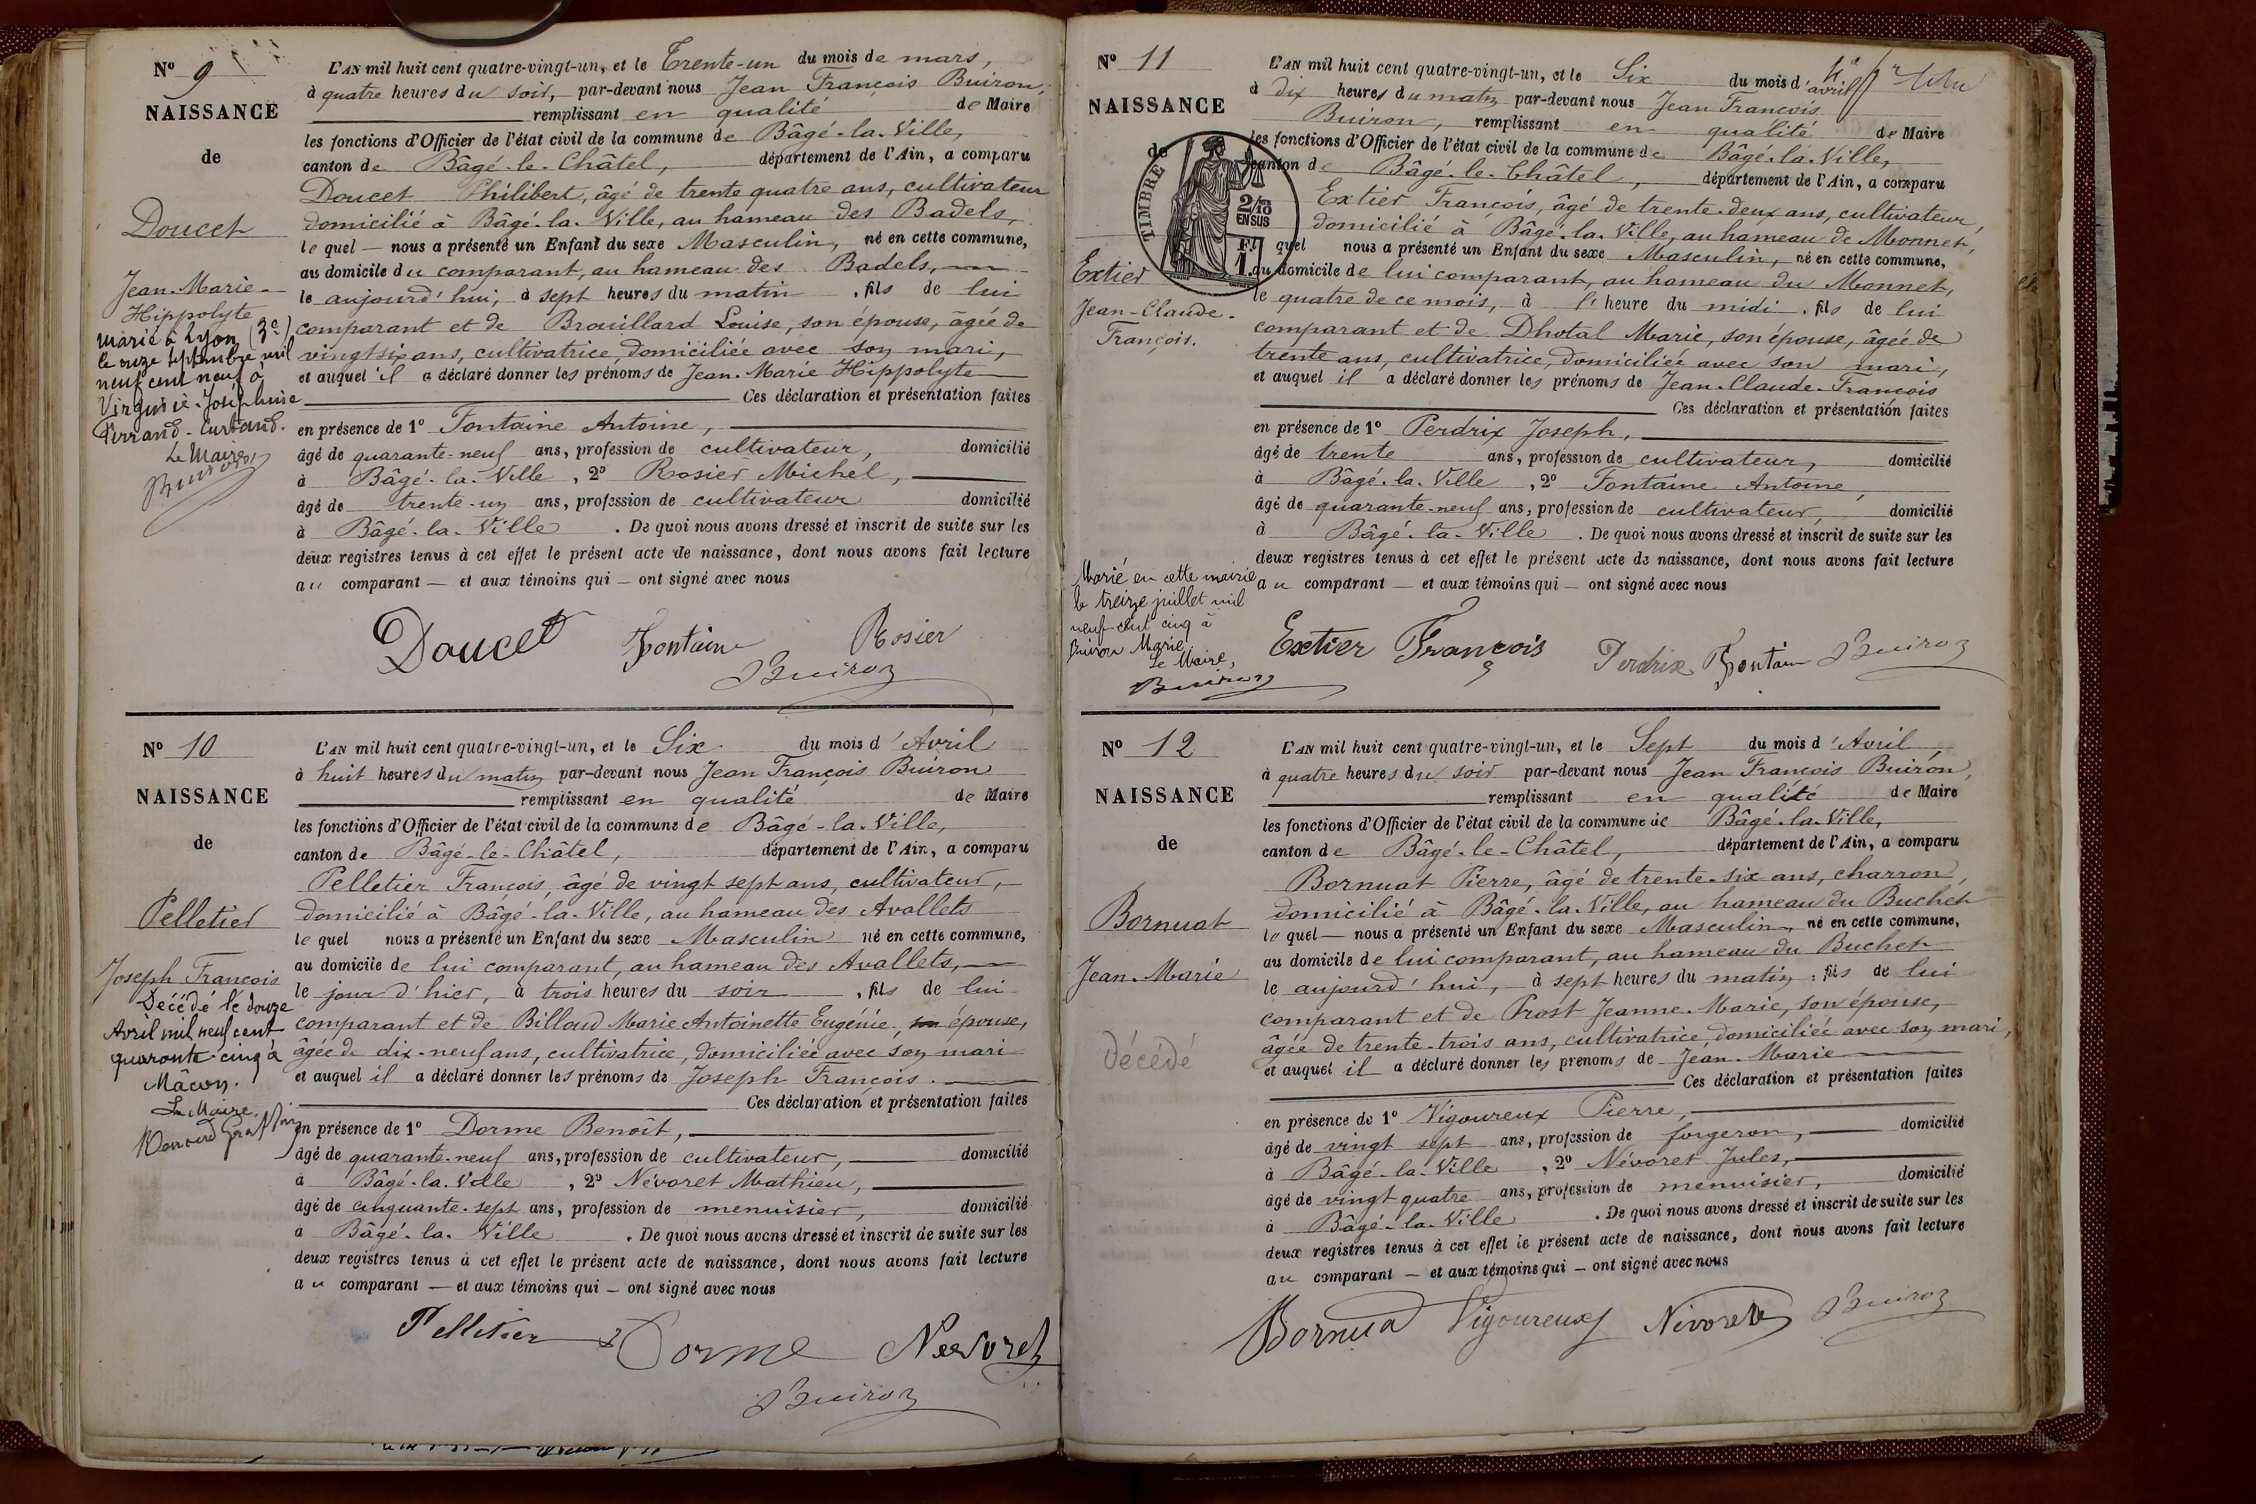 Nº 9
NAISSANCE
de
Doucet
Jean-Marie-
Hippolyte
marié à Lyon (3e)
le onze septembre mil
neuf cent neuf à
Virginie-Joséphine
Perrand-Curtand.
Le Maire
Buiron
L'AN mil huit cent quatre-vingt-un, et le Trente-un du mois de mars,
à quatre heures du soir, par-devant nous Jean François Buiron,
remplissant en qualité de Maire
les fonctions d'Officier de l'état civil de la commune de Bâgé-la-Ville,
canton de Bâgé-le-Châtel, département de l'Ain, a comparu
Doucet Philibert, âgé de trente quatre ans, cultivateur
domicilié à Bâgé-la-Ville, au hameau des Badels,
le quel — nous a présenté un Enfant du sexe Masculin, né en cette commune,
au domicile du comparant, au hameau des Badels, —
le aujourd'hui, à sept heures du matin, fils de lui
comparant et de Brouillard Louise, son épouse, âgée de
vingt six ans, cultivatrice, domiciliée avec son mari,
et auquel il a déclaré donner les prénoms de Jean-Marie Hippolyte
Ces déclaration et présentation faites
en présence de 1º Fontaine Antoine,
âgé de quarante-neuf ans, profession de cultivateur, domicilié
à Bâgé-la-Ville, 2º Rosier Michel,
âgé de trente-un ans, profession de cultivateur domicilié
à Bâgé-la-Ville. De quoi nous avons dressé et inscrit de suite sur les
deux registres tenus à cet effet le présent acte de naissance, dont nous avons fait lecture
au comparant — et aux témoins qui — ont signé avec nous
Doucet Fontaine Rosier
Buiron
Nº 10
NAISSANCE
de
Pelletier
Joseph François
Décédé le douze
Avril mil neuf cent
quarante cinq à
Mâcon.
Le Maire.
L'AN mil huit cent quatre-vingt-un, et le Six du mois d'Avril
à huit heures du matin par-devant nous Jean François Buiron
remplissant en qualité de Maire
les fonctions d'Officier de l'état civil de la commune de Bâgé-la-Ville,
canton de Bâgé-le-Châtel, département de l'Ain, a comparu
Pelletier François, âgé de vingt sept ans, cultivateur,
domicilié à Bâgé-la-Ville, au hameau des Avallets
le quel nous a présenté un Enfant du sexe Masculin né en cette commune,
au domicile de lui comparant, au hameau des Avallets, —
le jour d'hier, à trois heures du soir, fils de lui
comparant et de Billoud Marie Antoinette Eugénie, son épouse,
âgée de dix-neuf ans, cultivatrice, domiciliée avec son mari
et auquel il a déclaré donner les prénoms de Joseph François.
Ces déclaration et présentation faites
en présence de 1º Dorme Benoît,
âgé de quarante-neuf ans, profession de cultivateur, domicilié
à Bâgé-la-Ville, 2º Névoret Mathieu,
âgé de cinquante-sept ans, profession de menuisier, domicilié
à Bâgé-la-Ville. De quoi nous avons dressé et inscrit de suite sur les
deux registres tenus à cet effet le présent acte de naissance, dont nous avons fait lecture
au comparant — et aux témoins qui — ont signé avec nous
Pelletier Dorme Nevoret
Buiron
Nº 11
NAISSANCE
de
TIMBRE
2/10
EN SUS
Extier
Jean-Claude-
François.
Marié en cette mairie
le treize juillet mil
neuf cent cinq à
Buiron Marie,
Le Maire,
Buiron
L'AN mil huit cent quatre-vingt-un, et le Six du mois d'avril
à dix heures du matin par-devant nous Jean François
Buiron, remplissant en qualité de Maire
les fonctions d'Officier de l'état civil de la commune de Bâgé-la-Ville,
canton de Bâgé-le-Châtel, département de l'Ain, a comparu
Extier François, âgé de trente-deux ans, cultivateur,
domicilié à Bâgé-la-Ville, au hameau de Monnet,
quel nous a présenté un Enfant du sexe Masculin, né en cette commune,
au domicile de lui comparant, au hameau du Monnet,
le quatre de ce mois, à l'heure du midi. fils de lui
comparant et de Dhotal Marie, son épouse, âgée de
trente ans, cultivatrice, domiciliée avec son mari,
et auquel il a déclaré donner les prénoms de Jean-Claude-François
Ces déclaration et présentation faites
en présence de 1º Perdrix Joseph,
âgé de trente ans, profession de cultivateur, domicilié
à Bâgé-la-Ville, 2º Fontaine Antoine,
âgé de quarante-neuf ans, profession de cultivateur, domicilié
à Bâgé-la-Ville. De quoi nous avons dressé et inscrit de suite sur les
deux registres tenus à cet effet le présent acte de naissance, dont nous avons fait lecture
au comparant — et aux témoins qui — ont signé avec nous
Extier François Perdrix Fontaine Buiron
Nº 12
NAISSANCE
de
Bornuat
Jean-Marie
Décédé
L'AN mil huit cent quatre-vingt-un, et le Sept du mois d'Avril,
à quatre heures du soir par-devant nous Jean François Buiron,
remplissant en qualité de Maire
les fonctions d'Officier de l'état civil de la commune de Bâgé-la-Ville,
canton de Bâgé-le-Châtel, département de l'Ain, a comparu
Bornuat Pierre, âgé de trente-six ans, charron,
domicilié à Bâgé-la-Ville, au hameau du Buchet
le quel — nous a présenté un Enfant du sexe Masculin, né en cette commune,
au domicile de lui comparant, au hameau du Buchet
le aujourd'hui, à sept heures du matin, fils de lui
comparant et de Prost Jeanne-Marie, son épouse,
âgée de trente-trois ans, cultivatrice, domiciliée avec son mari,
et auquel il a déclaré donner les prénoms de Jean-Marie
Ces déclaration et présentation faites
en présence de 1º Vigoureux Pierre,
âgé de vingt sept ans, profession de forgeron, domicilié
à Bâgé-la-Ville, 2º Névoret Jules,
âgé de vingt quatre ans, profession de menuisier, domicilié
à Bâgé-la-Ville. De quoi nous avons dressé et inscrit de suite sur les
deux registres tenus à cet effet le présent acte de naissance, dont nous avons fait lecture
au comparant — et aux témoins qui — ont signé avec nous
Bornua Vigoureux Névoret Buiron